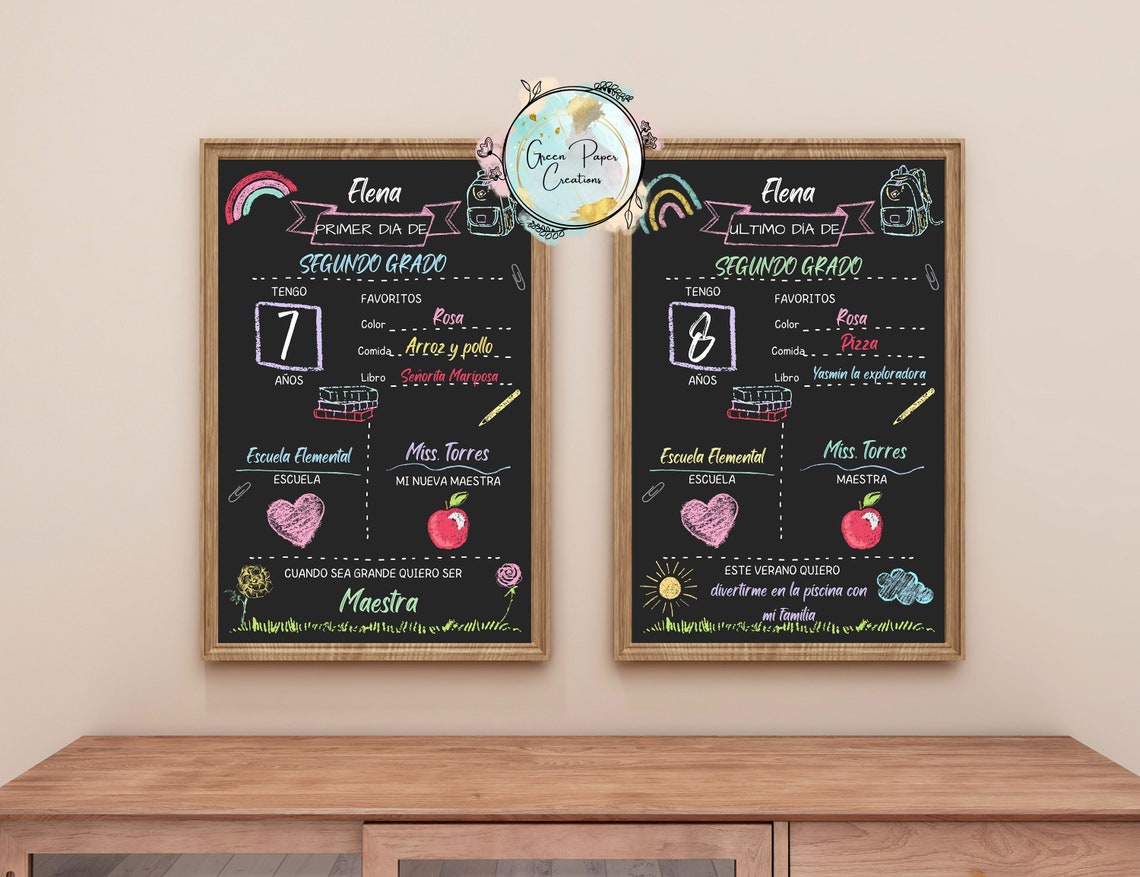 Green Paper
Creations
Elena
PRIMER DIA DE
SEGUNDO GRADO
TENGO
7
AÑOS
FAVORITOS
Color Rosa
Comida Arroz y pollo
Libro Señorita Mariposa
Escuela Elemental
ESCUELA
Miss. Torres
MI NUEVA MAESTRA
CUANDO SEA GRANDE QUIERO SER
Maestra
Elena
ÚLTIMO DÍA DE
SEGUNDO GRADO
TENGO
8
AÑOS
FAVORITOS
Color Rosa
Comida Pizza
Libro Yasmin la exploradora
Escuela Elemental
ESCUELA
Miss. Torres
MAESTRA
ESTE VERANO QUIERO
divertirme en la piscina con
mi Familia